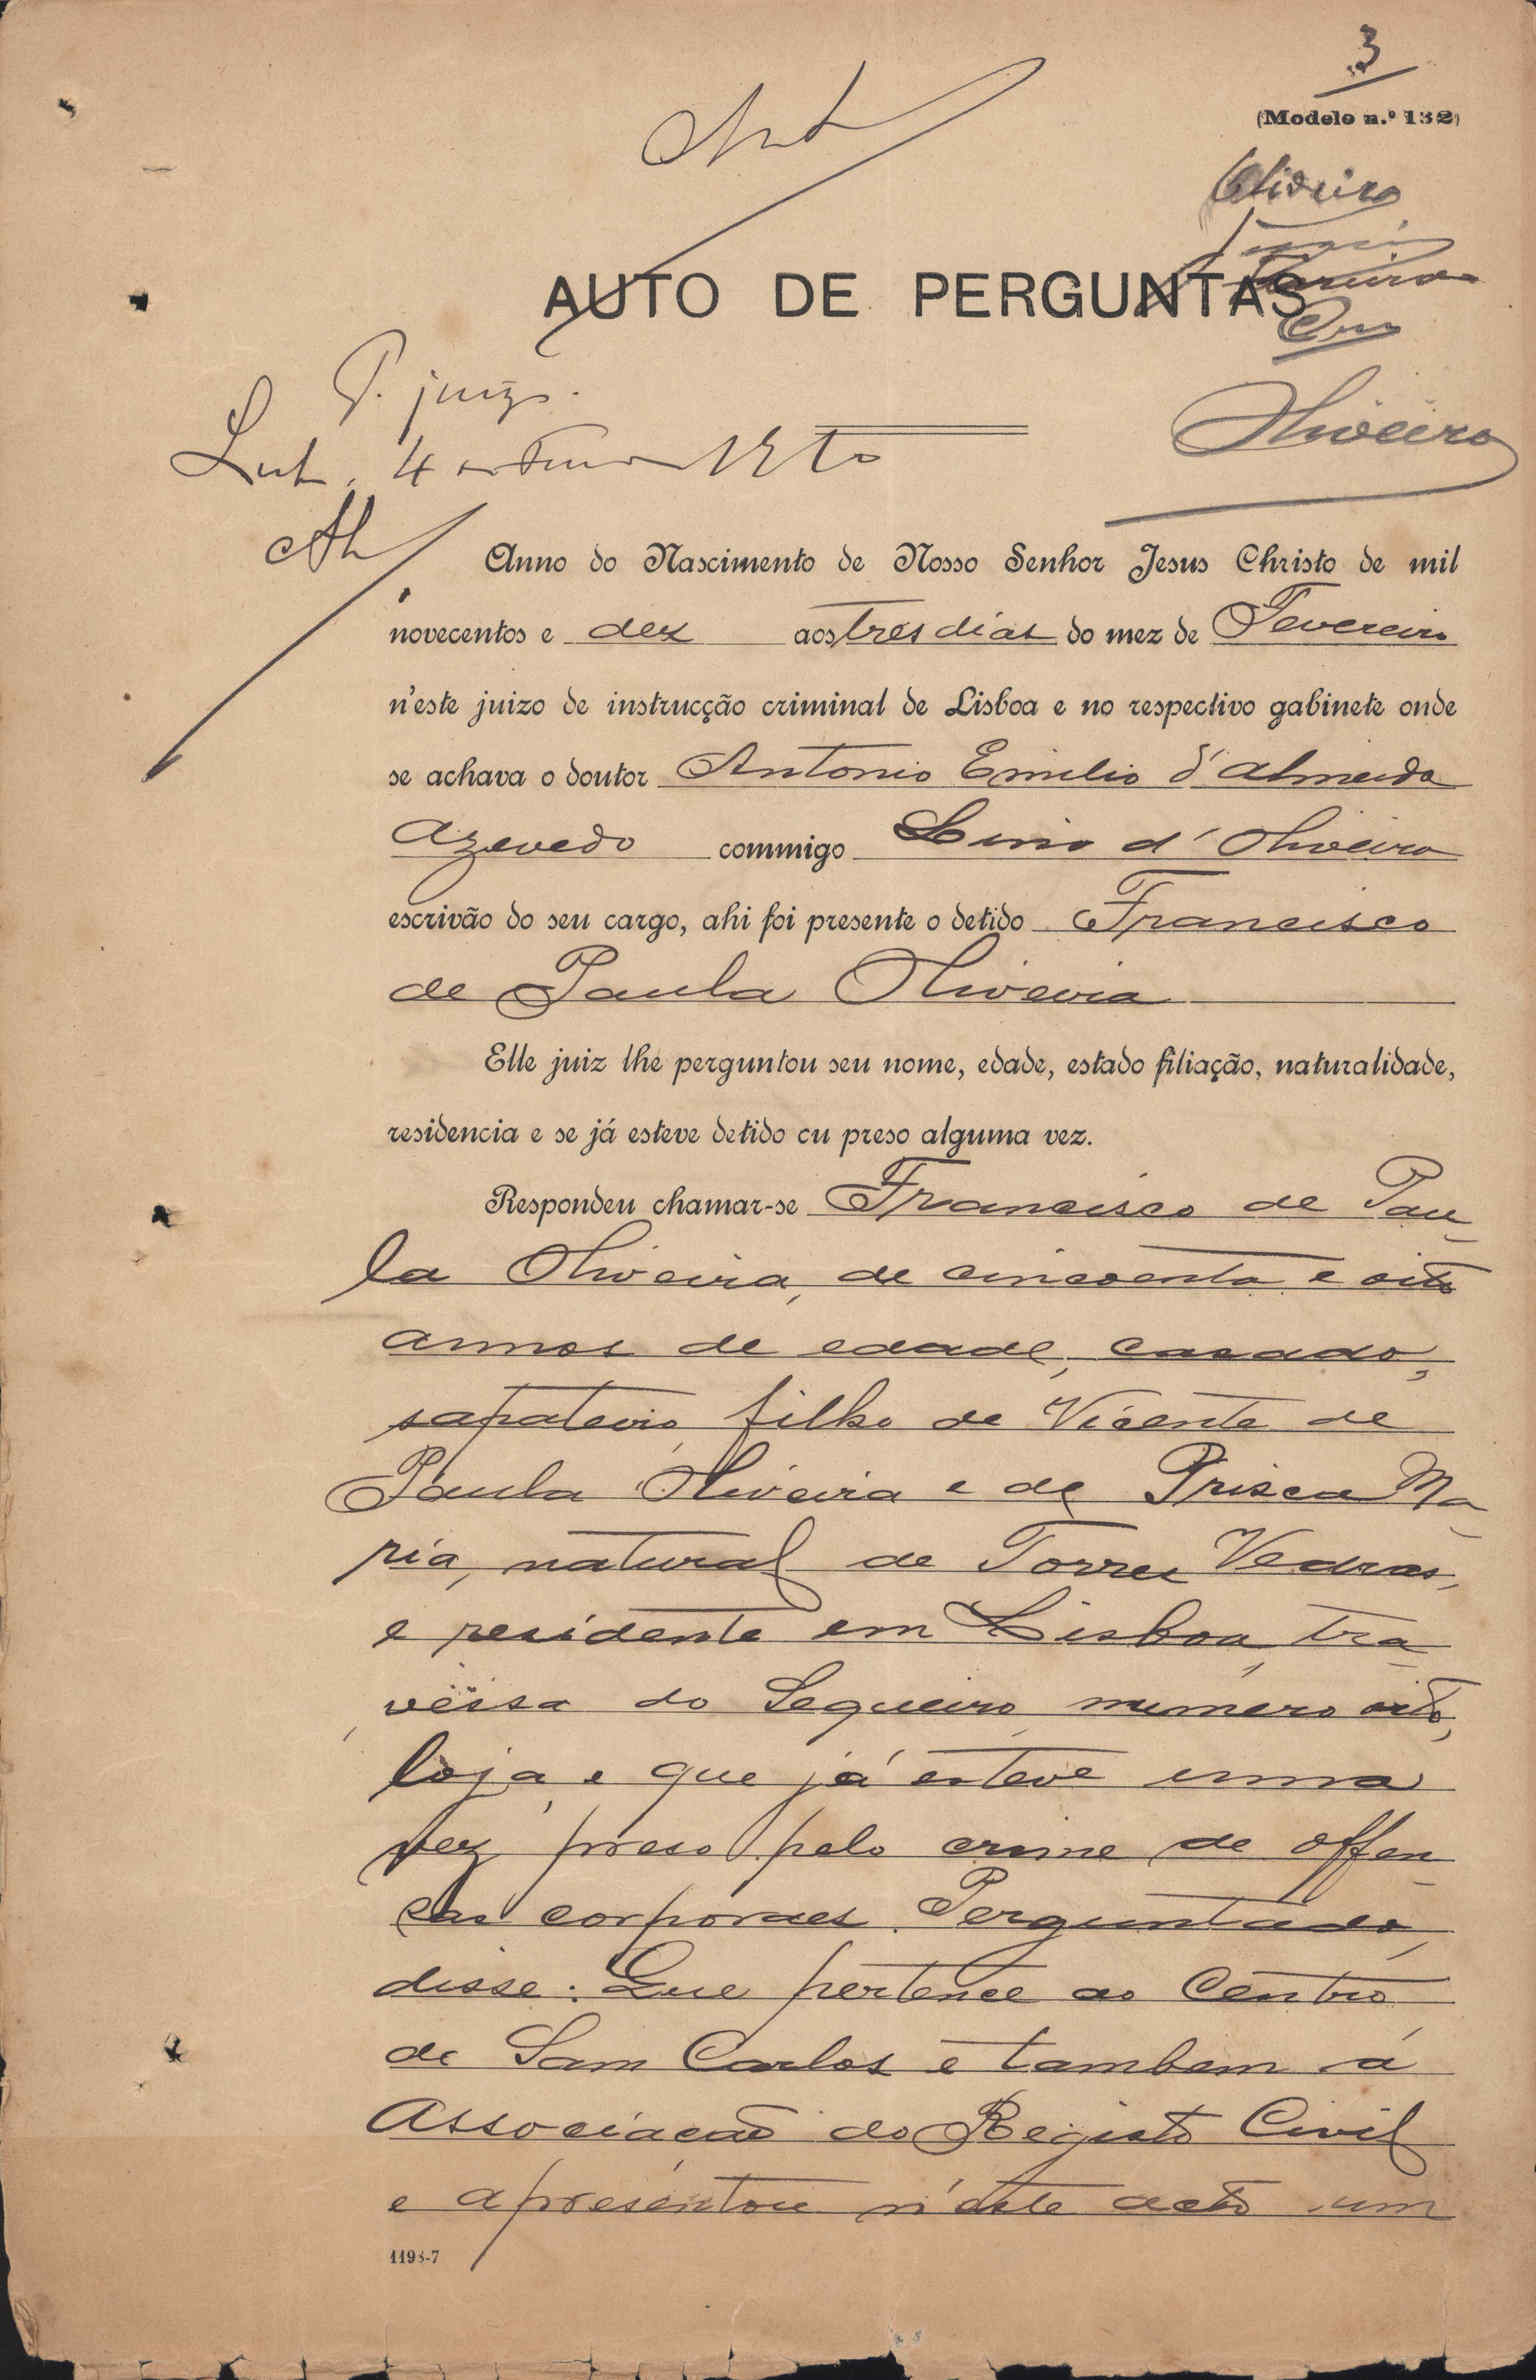 3
(Modelo n.º 132)
Oliveira
AUTO DE PERGUNTAS
P. juizo.
4 1910
Oliveira
Anno do Nascimento de Nosso Senhor Jesus Christo de mil
novecentos e dez aos tres dias do mez de Fevereiro
n'este juizo de instrucção criminal de Lisboa e no respectivo gabinete onde
se achava o doutor Antonio Emilio d'Almeida
Azevedo commigo Lino d'Oliveira
escrivão do seu cargo, ahi foi presente o detido Francisco
de Paula Oliveira
Elle juiz lhe perguntou seu nome, edade, estado filiação, naturalidade,
residencia e se já esteve detido cu preso alguma vez.
Respondeu chamar-se Francisco de Pau-
la Oliveira, de cincoenta e oito
annos de edade, casado,
sapateiro, filho de Vicente de
Paula Oliveira e de Prisca Ma-
ria, natural de Torres Vedras,
e residente em Lisboa, tra-
vessa do Sequeiro, numero oito,
loja, e que já esteve uma
vez preso pelo crime de offen-
sas corporaes. Perguntado,
disse: Que pertence ao Centro
de Sam Carlos e tambem á
Associação do Registo Civil
e apresentou n'este acto um
1198-7